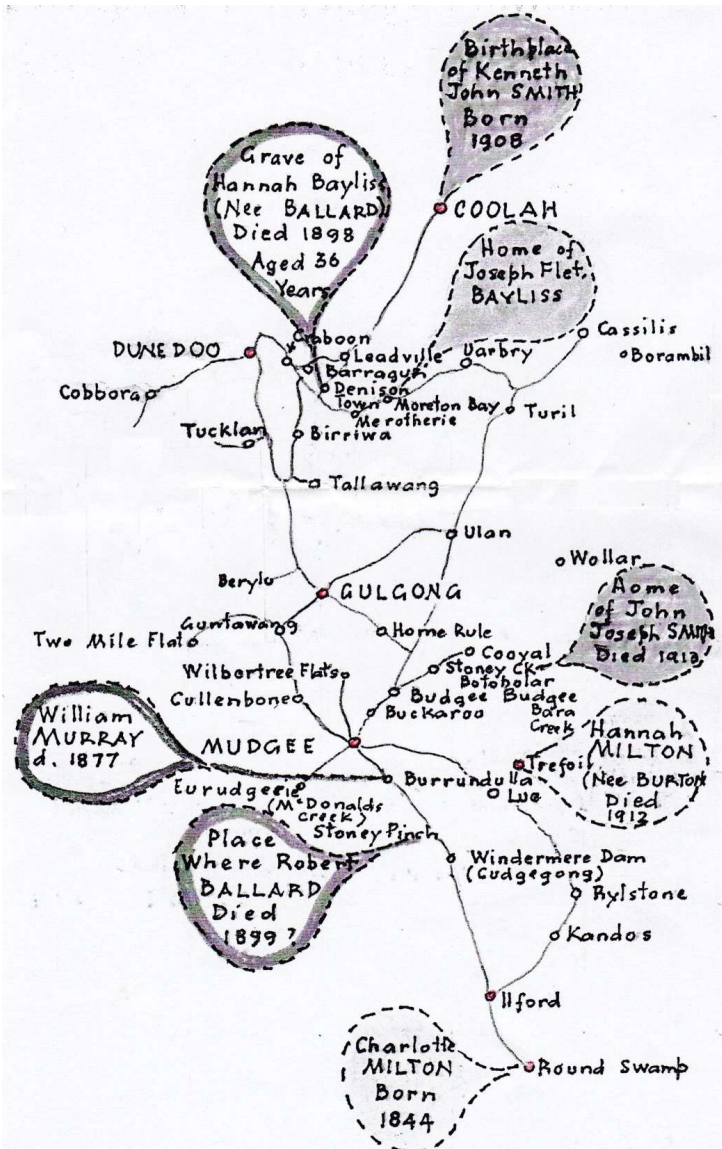 Birthplace
of Kenneth
John SMITH
Born
1908
Grave of
Hannah Bayliss
(Nee BALLARD)
Died 1898
Aged 36
Years
COOLAH
Home of
Joseph Flet.
BAYLISS
Cassilis
Borambil
DUNEDOO
Craboon
Leadville
Barragun
Varbry
Cobbora
Denison
Town
Moreton Bay
Turil
Merotherie
Tucklan
Birriwa
Tallawang
Ulan
Wollar
Beryl
GULGONG
Home
of John
Joseph SMITH
Died 1913
Guntawang
Two Mile Flat
Home Rule
Cooyal
Stoney CK
Botobolar
Wilbertree Flats
Cullenbone
Budgee Budgee
Buckaroo
Bara
Creek
William
MURRAY
d. 1877
MUDGEE
Hannah
MILTON
(Nee BURTON
Died
1912
Trefoil
Burrundulla
Lue
Eurudgere
(McDonalds
Creek)
Stoney Pinch
Place
Where Robert
BALLARD
Died
1899?
Windermere Dam
(Cudgegong)
Rylstone
Kandos
Ilford
Charlotte
MILTON
Born
1844
Round Swamp